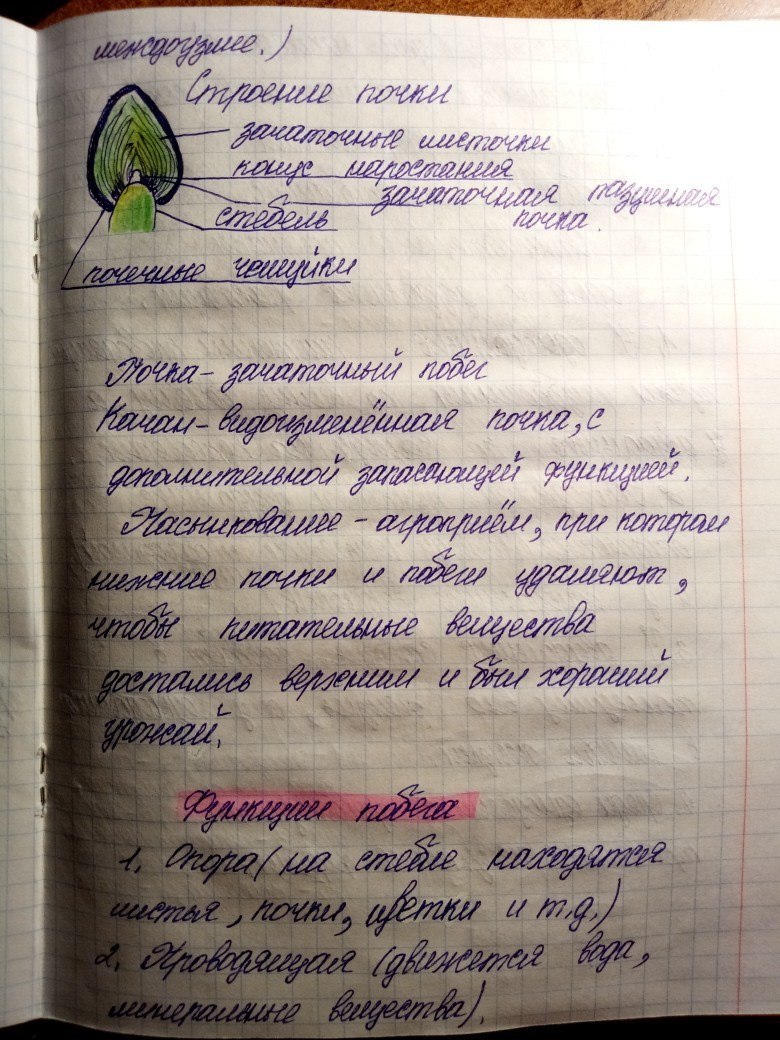 междоузлие.)
Строение почки
зачаточные листочки
конус наростания
зачаточная пазушная
стебель почка.
почечные чешуйки
Почка - зачаточный побег
Качан - видоизменённая почка, с
дополнительной запасающей функцией.
Пасынкование - агроприём, при котором
нижние почки и побеги удаляют,
чтобы питательные вещества
достались верхним и был хороший
урожай.
Функции побега
1. Опора (на стебле находятся
листья, почки, цветки и т.д.)
2. Проводящая (движется вода,
минеральные вещества).